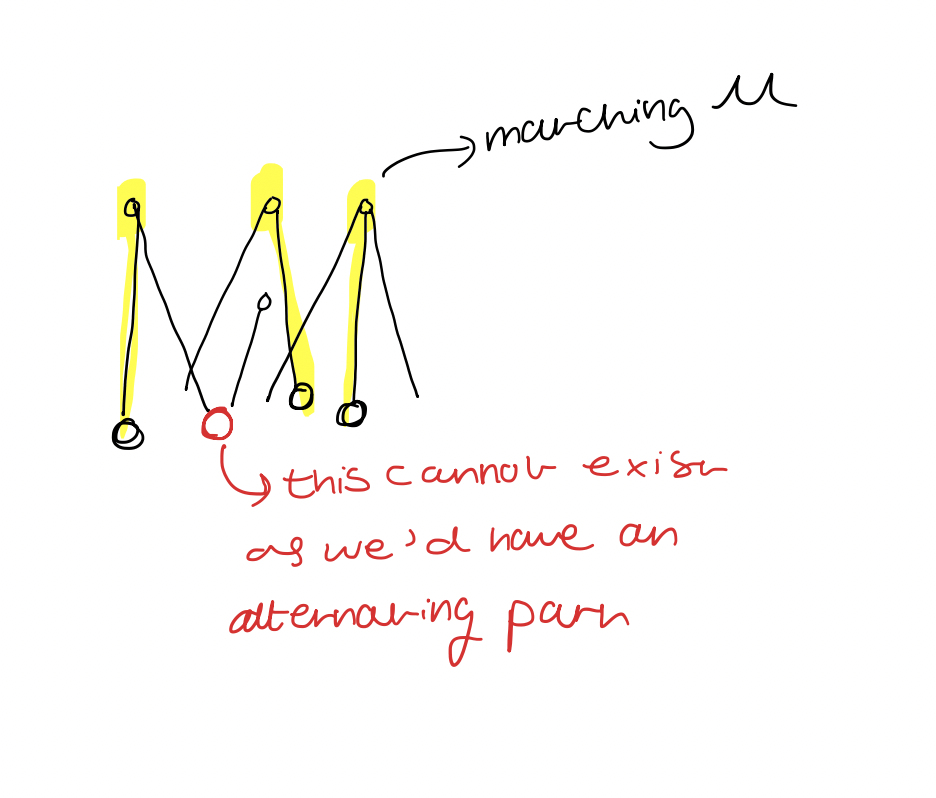 matching M
this cannot exist
as we'd have an
alternating path